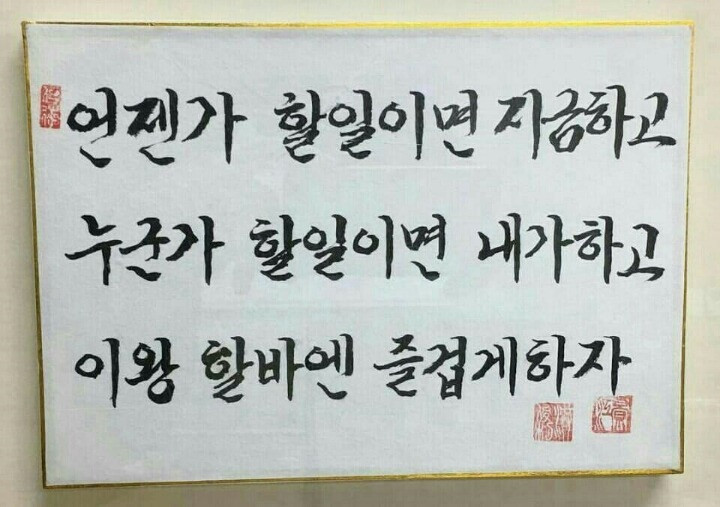 언젠가 할일이면 지금하고
누군가 할일이면 내가하고
이왕 할바엔 즐겁게하자